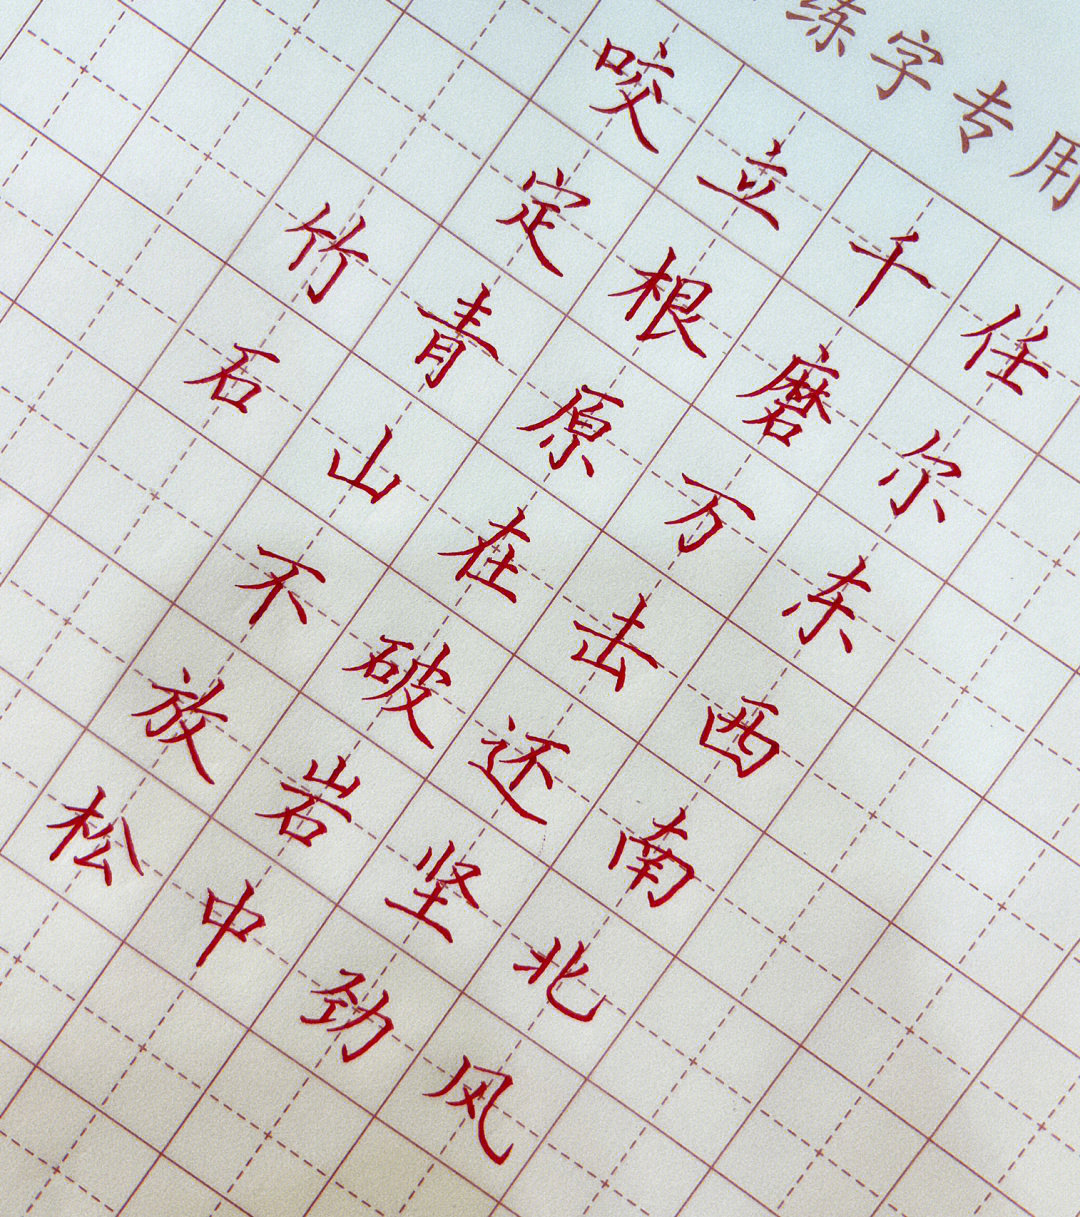 练字专用
竹石
咬定青山不放松
立根原在破岩中
千磨万击还坚劲
任尔东西南北风